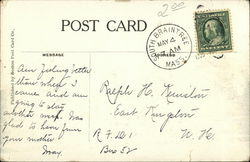 2.00
POST CARD
SOUTH BRAINTREE
MAY 4
AM
MASS.
MESSAGE
Published by Reichner Post Card Co.
Am feeling better
than when I
came and am
going to stay
another week. Was
glad to hear from
your mother
May.
Ralph H. Keniston
East Kingston
R.F.D. 1 N.H.
Box 52